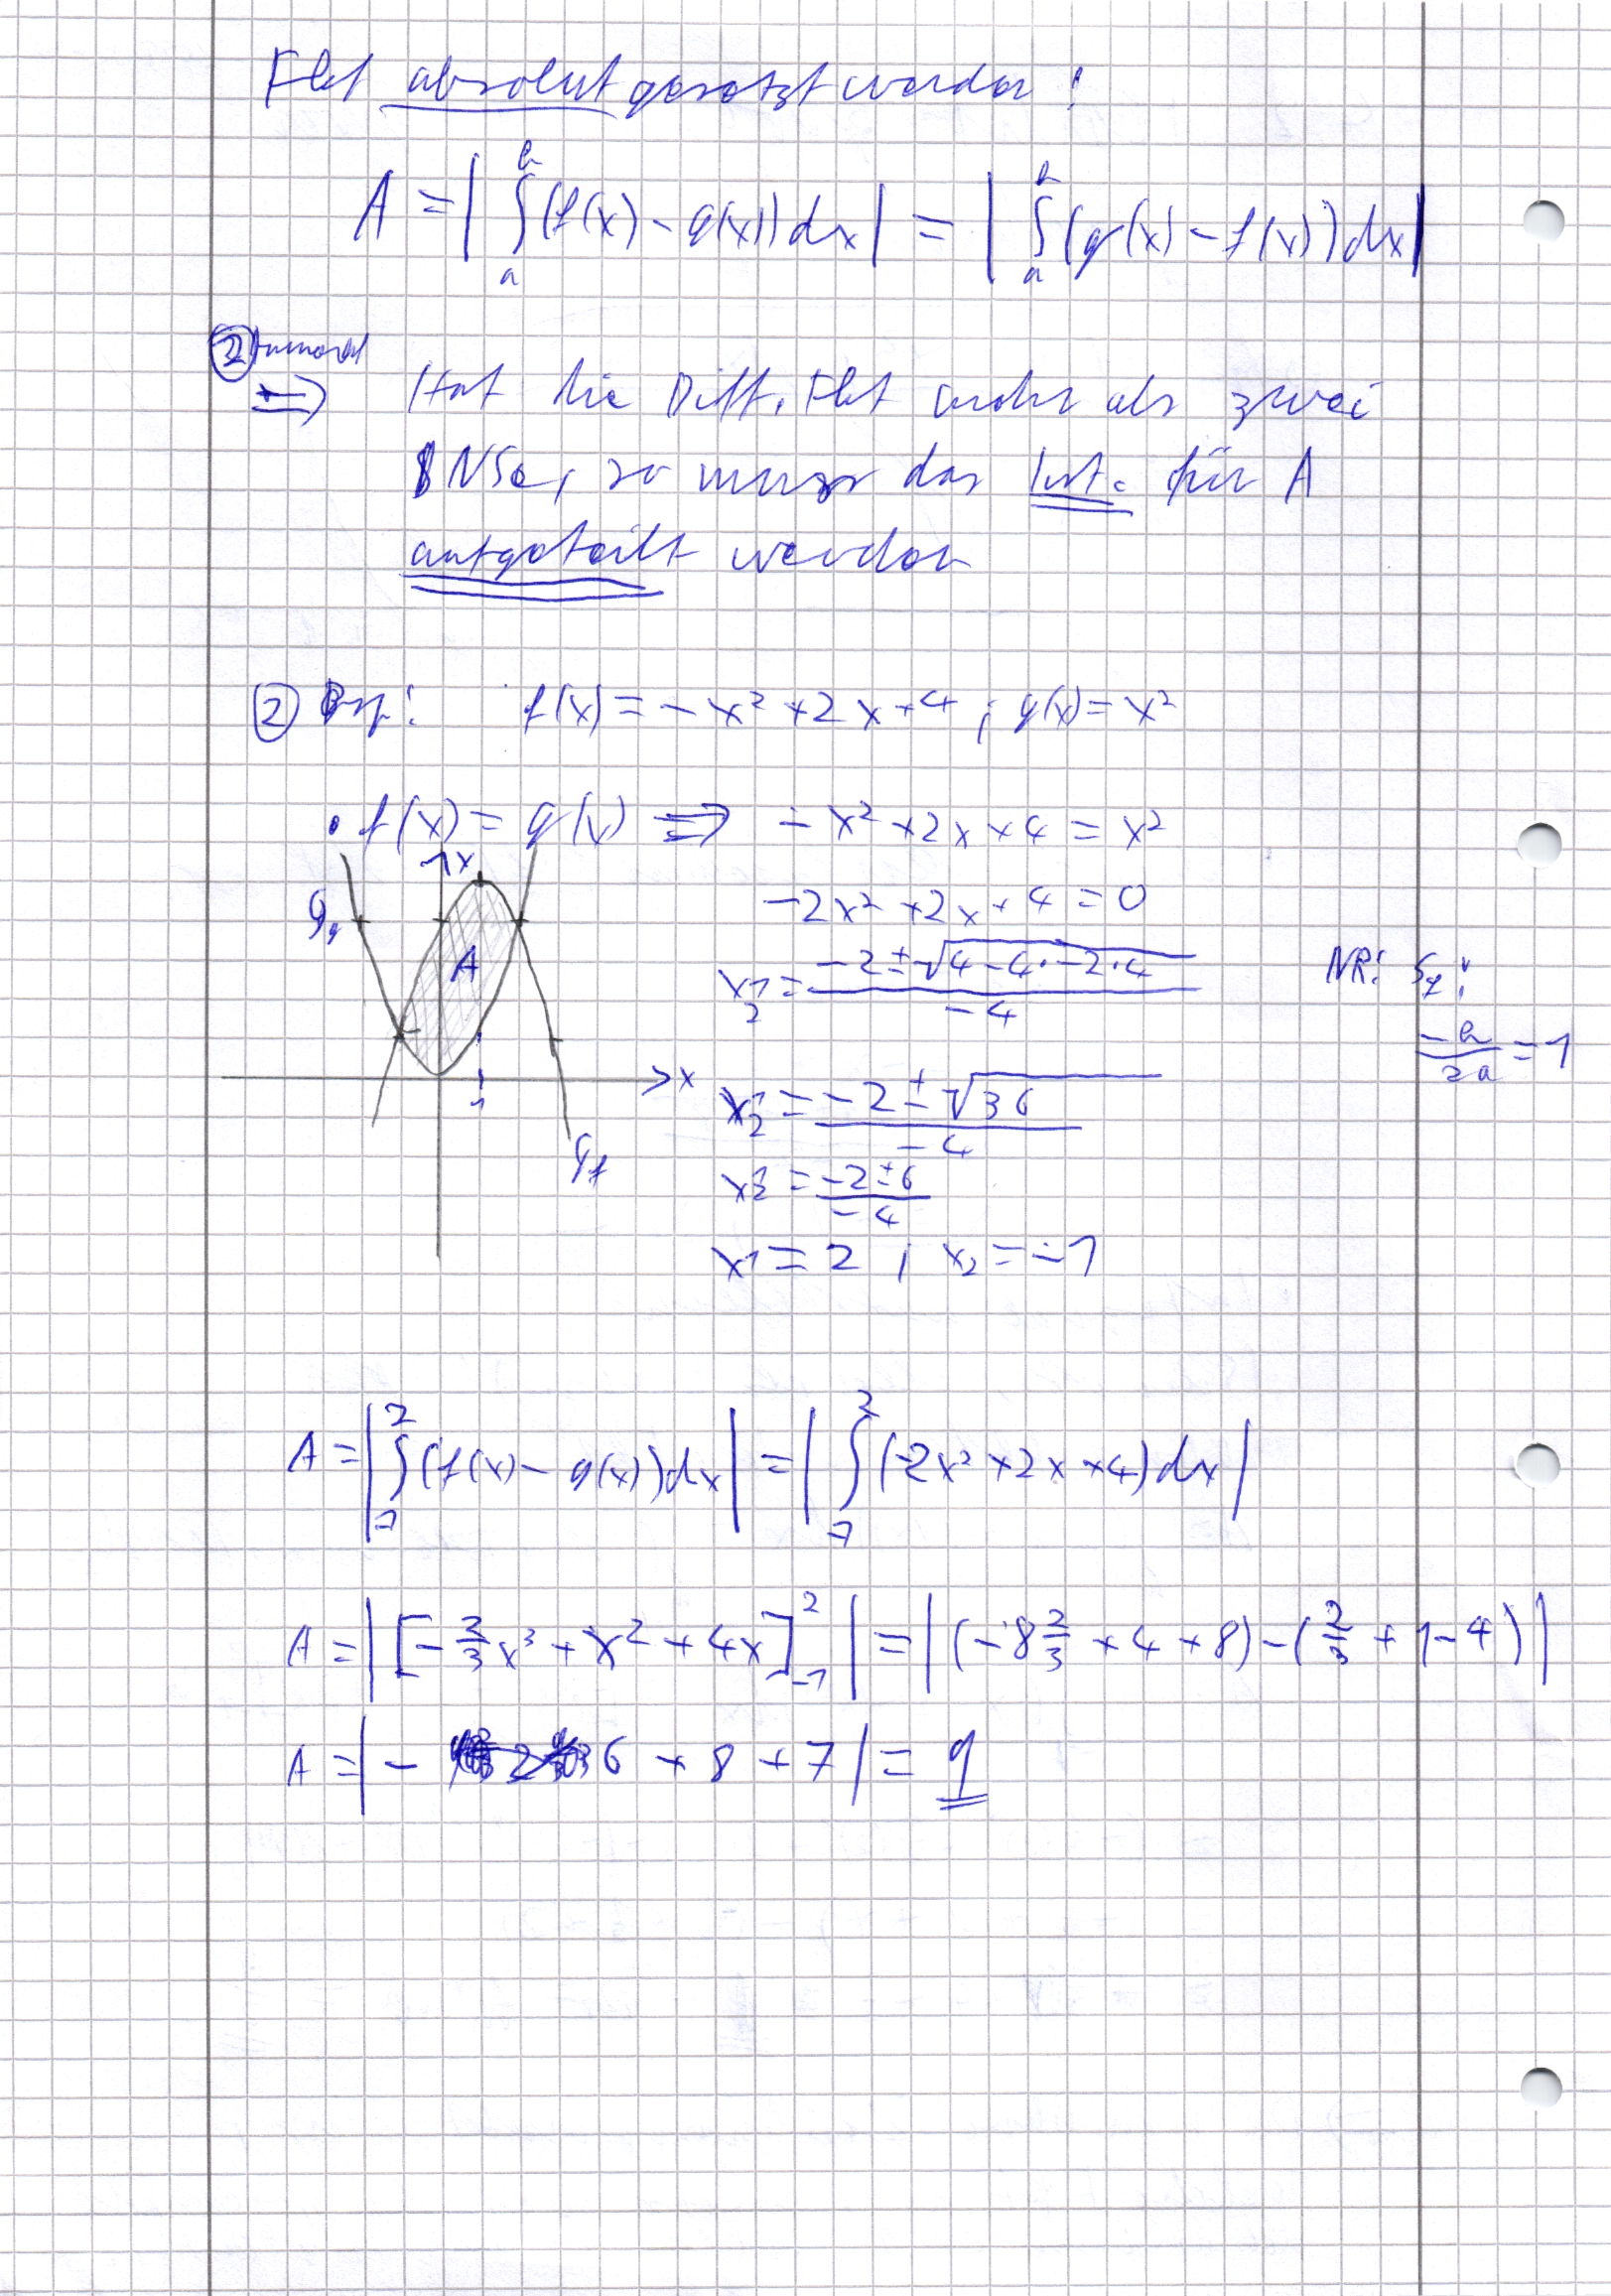 Fkt absolut gesetzt werden!
A = | ∫ₐᵇ (f(x) - g(x)) dx | = | ∫ₐᵇ (g(x) - f(x)) dx |
②
⇒ Hat die Diff. Fkt mehr als zwei
NSe, so muss das Int. für A
aufgeteilt werden
② Bsp: f(x) = -x² + 2x + 4 ; g(x) = x²
• f(x) = g(x) ⇒ -x² + 2x + 4 = x²
-2x² + 2x + 4 = 0
x½ = (-2 ± √(4 - 4·-2·4)) / -4
NR: Sx: -b/2a = 1
x½ = (-2 ± √36) / -4
x½ = (-2 ± 6) / -4
x1 = 2 ; x₂ = -1
↑x
Gg
A
>x
1
Gf
A = | ∫₋₁² (f(x) - g(x)) dx | = | ∫₋₁² (-2x² + 2x + 4) dx |
A = | [-⅔x³ + x² + 4x]₋₁² | = | (-8⅔ + 4 + 8) - (⅔ + 1 - 4) |
A = | - 6 + 8 + 7 | = 9